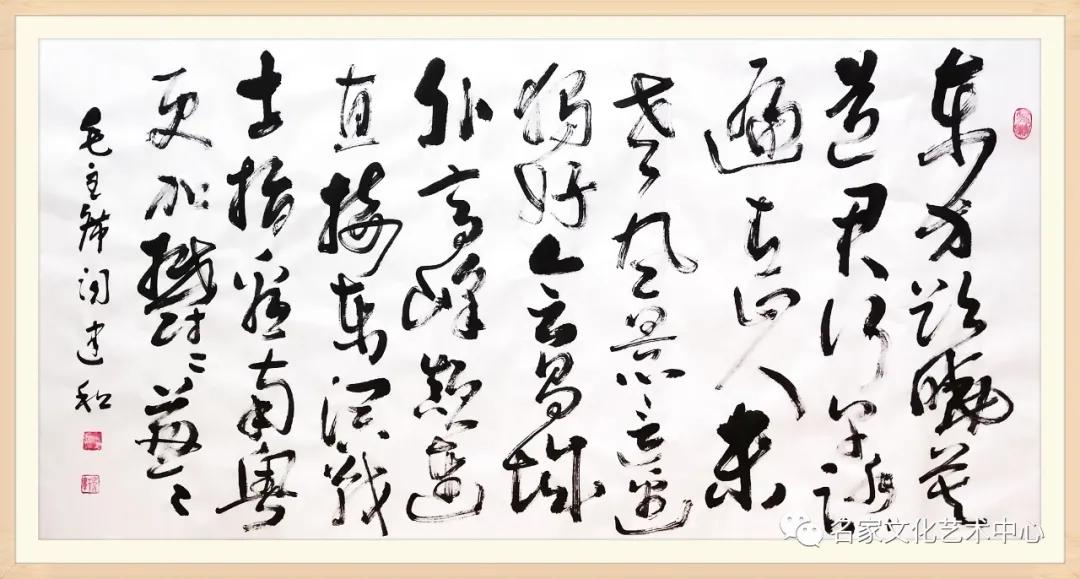 东方欲晓莫
道君行早踏
遍青山人未
老风景这边
独好会昌城
外高峰颠连
直接东溟战
士指看南粤
更加鬱〻葱〻
毛主席词 建和
名家文化艺术中心